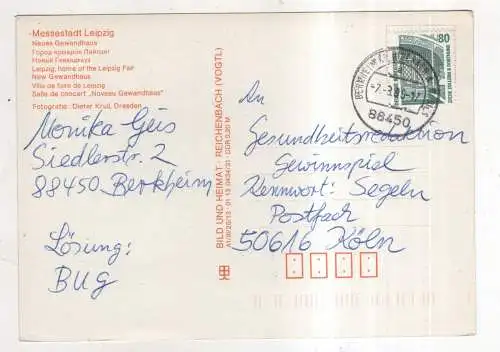 Messestadt Leipzig
Neues Gewandhaus
Город ярмарок Лейпциг
Новый Гевандхауз
Leipzig, home of the Leipzig Fair
New Gewandhaus
Ville de foire de Leipzig
Salle de concert „Nouveau Gewandhaus“
Fotografie: Dieter Krull, Dresden
Monika Geis
Siedlerstr. 2
88450 Berkheim
Lösung:
BUG
BILD UND HEIMAT · REICHENBACH (VOGTL)
80
88450
An
Gesundheitsredaktion
Gewinnspiel
Kennwort: Segeln
Postfach
50616 Köln